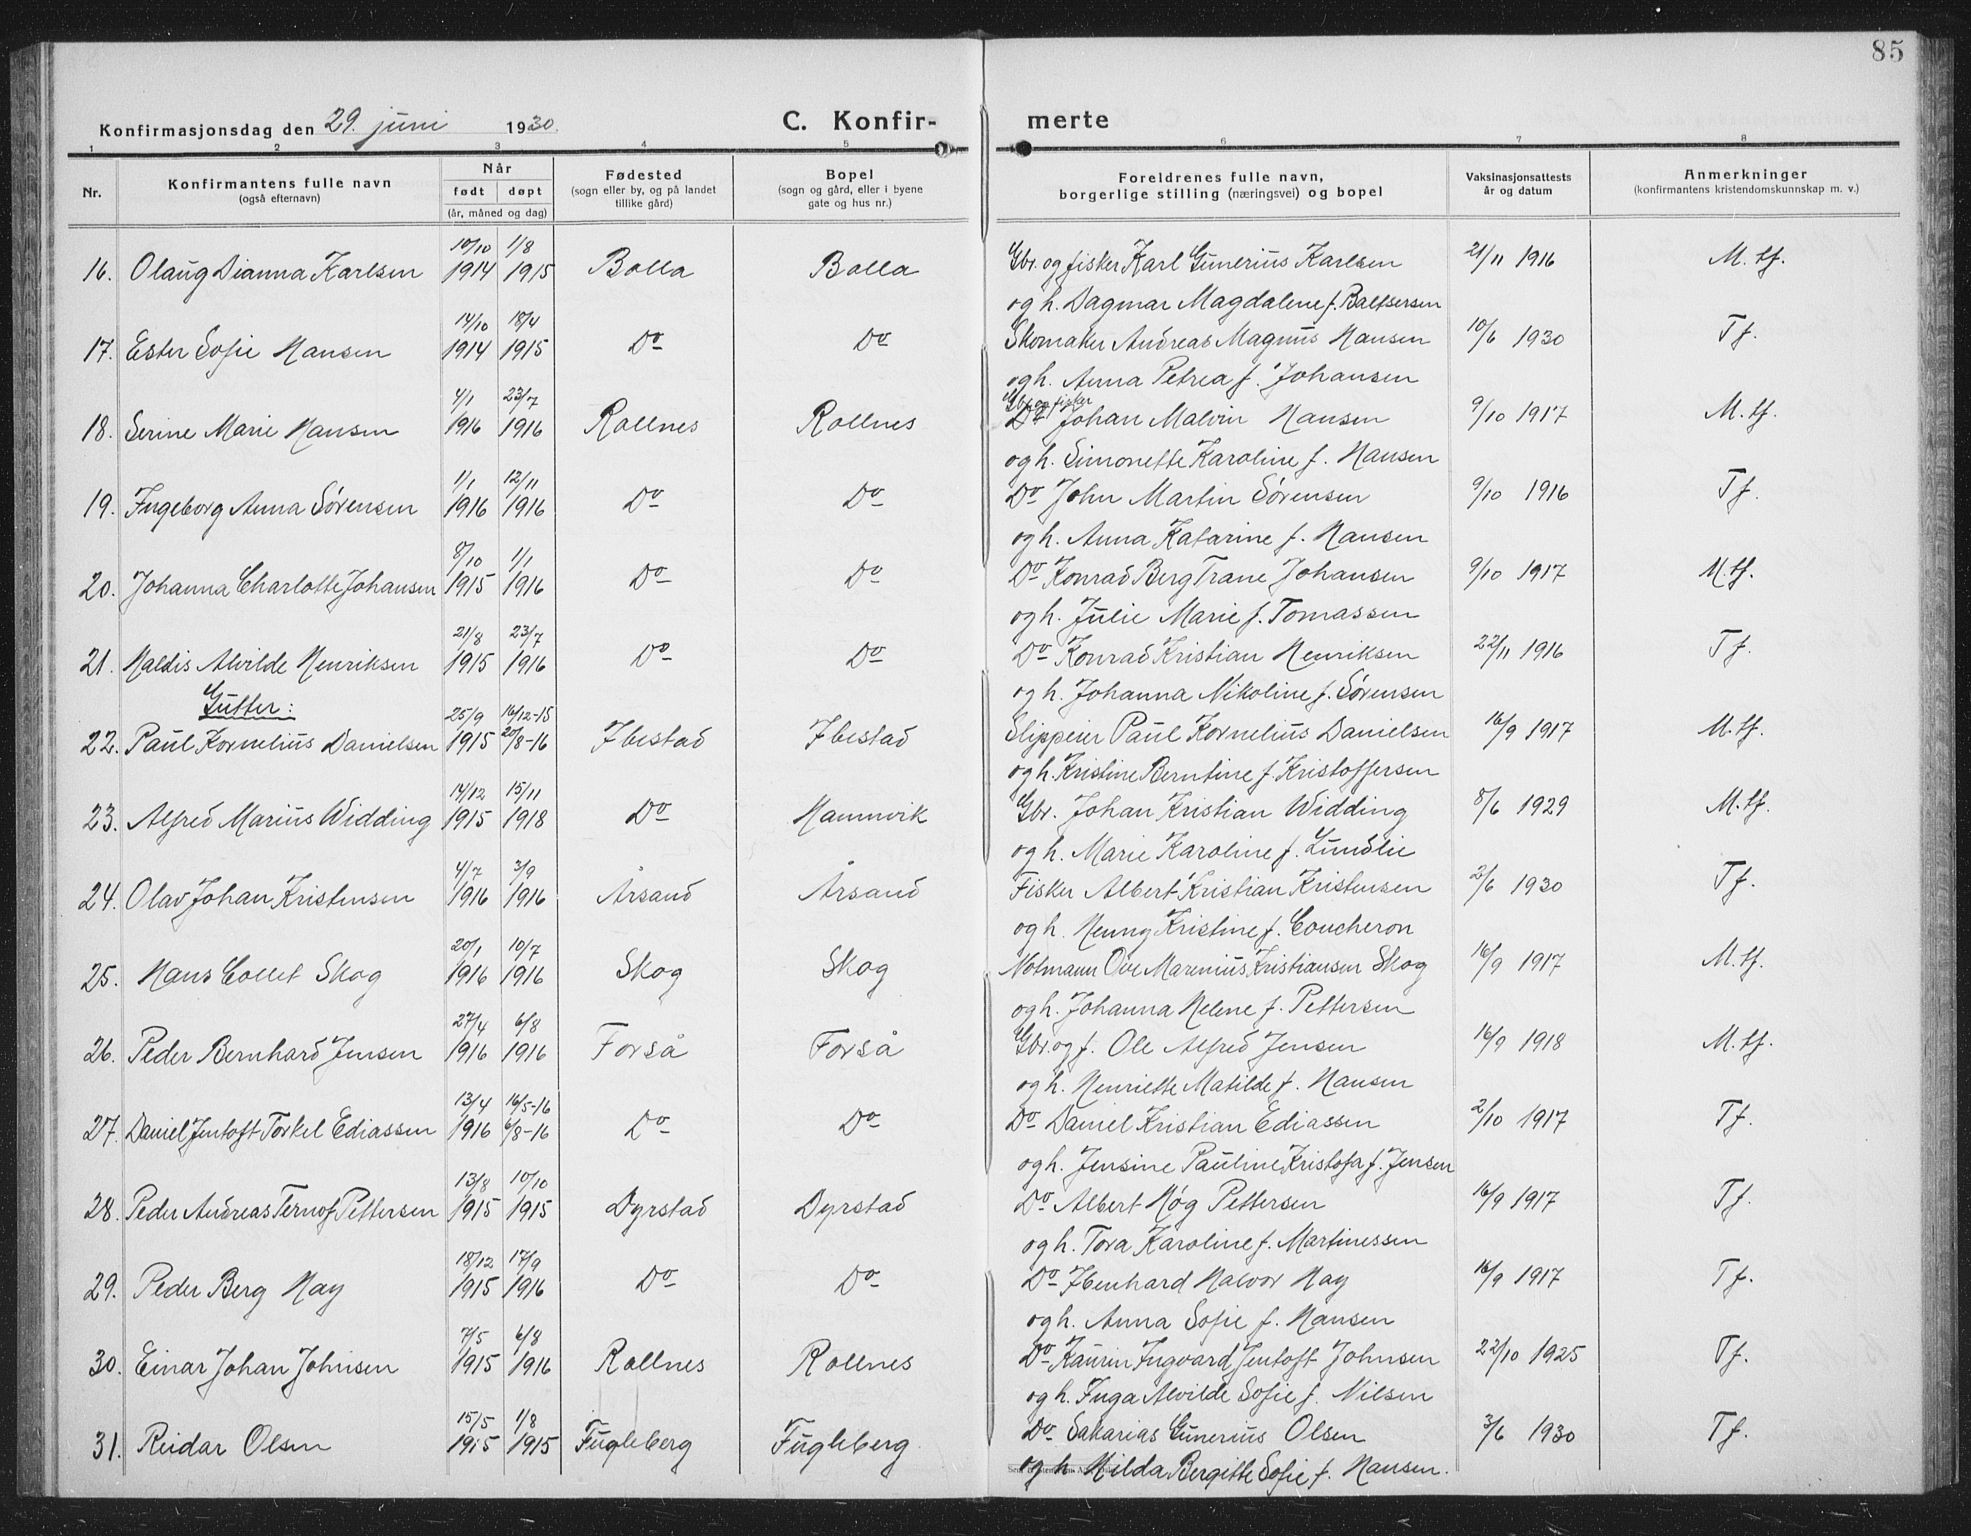 85
Konfirmasjonsdag den 29. juni 1930.
C. Konfir-merte
1 2 3 4 5 6 7 8
Nr.
Konfirmantens fulle navn
(også efternavn)
Når
født døpt
(år, måned og dag)
Fødested
(sogn eller by, og på landet
tillike gård)
Bopel
(sogn og gård, eller i byene
gate og hus nr.)
Foreldrenes fulle navn,
borgerlige stilling (næringsvei) og bopel
Vaksinasjonsattests
år og datum
Anmerkninger
(konfirmantens kristendomskunnskap m. v.)
10/10 1/8
16. Olaug Dianna Karlsen 1914 1915 Bolla Bolla Gbr. og fisker Karl Gunerius Karlsen 21/11 1916 M. tf.
og h. Dagmar Magdalene f. Baltsersen
14/10 18/4
17. Ester Sofie Hansen 1914 1915 Do Do Skomaker Andreas Magnus Hansen 10/6 1930 Tf.
og h. Anna Petrea f. Johansen
4/1 23/7 Gbr. og fisker
18. Serine Marie Hansen 1916 1916 Rollnes Rollnes Do Johan Malvin Hansen 9/10 1917 M. tf.
og h. Simonette Karoline f. Hansen
1/1 12/11
19. Ingeborg Anna Sørensen 1916 1916 Do Do Do John Martin Sørensen 9/10 1916 Tf.
og h. Anna Katarine f. Hansen
8/10 1/1
20. Johanna Charlotte Johansen 1915 1916 Do Do Do Konrad Berg Trane Johansen 9/10 1917 M. tf.
og h. Julie Marie f. Tomassen
21/8 23/7
21. Haldis Alvilde Henriksen 1915 1916 Do Do Do Konrad Kristian Henriksen 22/11 1916 Tf.
og h. Johanna Nikoline f. Sørensen
Gutter:
25/9 16/12-15
22. Paul Kornelius Danielsen 1915 20/8-16 Ibestad Ibestad Slippeier Paul Kornelius Danielsen 16/9 1917 M. tf.
og h. Kristine Berntine f. Kristoffersen
14/12 15/11
23. Alfred Marius Widding 1915 1918 Do Hamnvik Gbr. Johan Kristian Widding 8/6 1929 M. tf.
og h. Marie Karoline f. Lundlie
4/7 3/9
24. Olav Johan Kristensen 1916 1916 Årsand Årsand Fisker Albert Kristian Kristensen 2/6 1930 Tf.
og h. Henny Kristine f. Coucheron
20/1 10/7
25. Hans Collet Skog 1916 1916 Skog Skog Notmann Ove Marenius Kristiansen Skog 16/9 1917 M. tf.
og h. Johanna Helene f. Pettersen
27/4 6/8
26. Peder Bernhard Jensen 1916 1916 Forså Forså Gbr. og f. Ole Alfred Jensen 16/9 1918 M. tf.
og h. Henriette Matilde f. Hansen
13/4 16/5-16
27. Daniel Jentoft Torkel Ediassen 1916 6/8-16 Do Do Do Daniel Kristian Ediassen 2/10 1917 Tf.
og h. Jensine Pauline Kristofa f. Jensen
13/8 10/10
28. Peder Andreas Ternof Pettersen 1915 1915 Dyrstad Dyrstad Do Albert Høg Pettersen 16/9 1917 Tf.
og h. Tora Karoline f. Martinessen
18/12 17/9
29. Peder Berg Hay 1915 1916 Do Do Do Ibenhard Halvor Hay 16/9 1917 Tf.
og h. Anna Sofie f. Hansen
7/5 6/8
30. Einar Johan Johnsen 1915 1916 Rollnes Rollnes Do Kaurin Ingvard Jentoft Johnsen 22/10 1925 Tf.
og h. Inga Alvilde Sofie f. Nilsen
15/5 1/8
31. Reidar Olsen 1915 1915 Fugleberg Fugleberg. Do Sakarias Gunerius Olsen 3/6 1930 Tf.
og h. Hilda Bergitte Sofie f. Hansen.